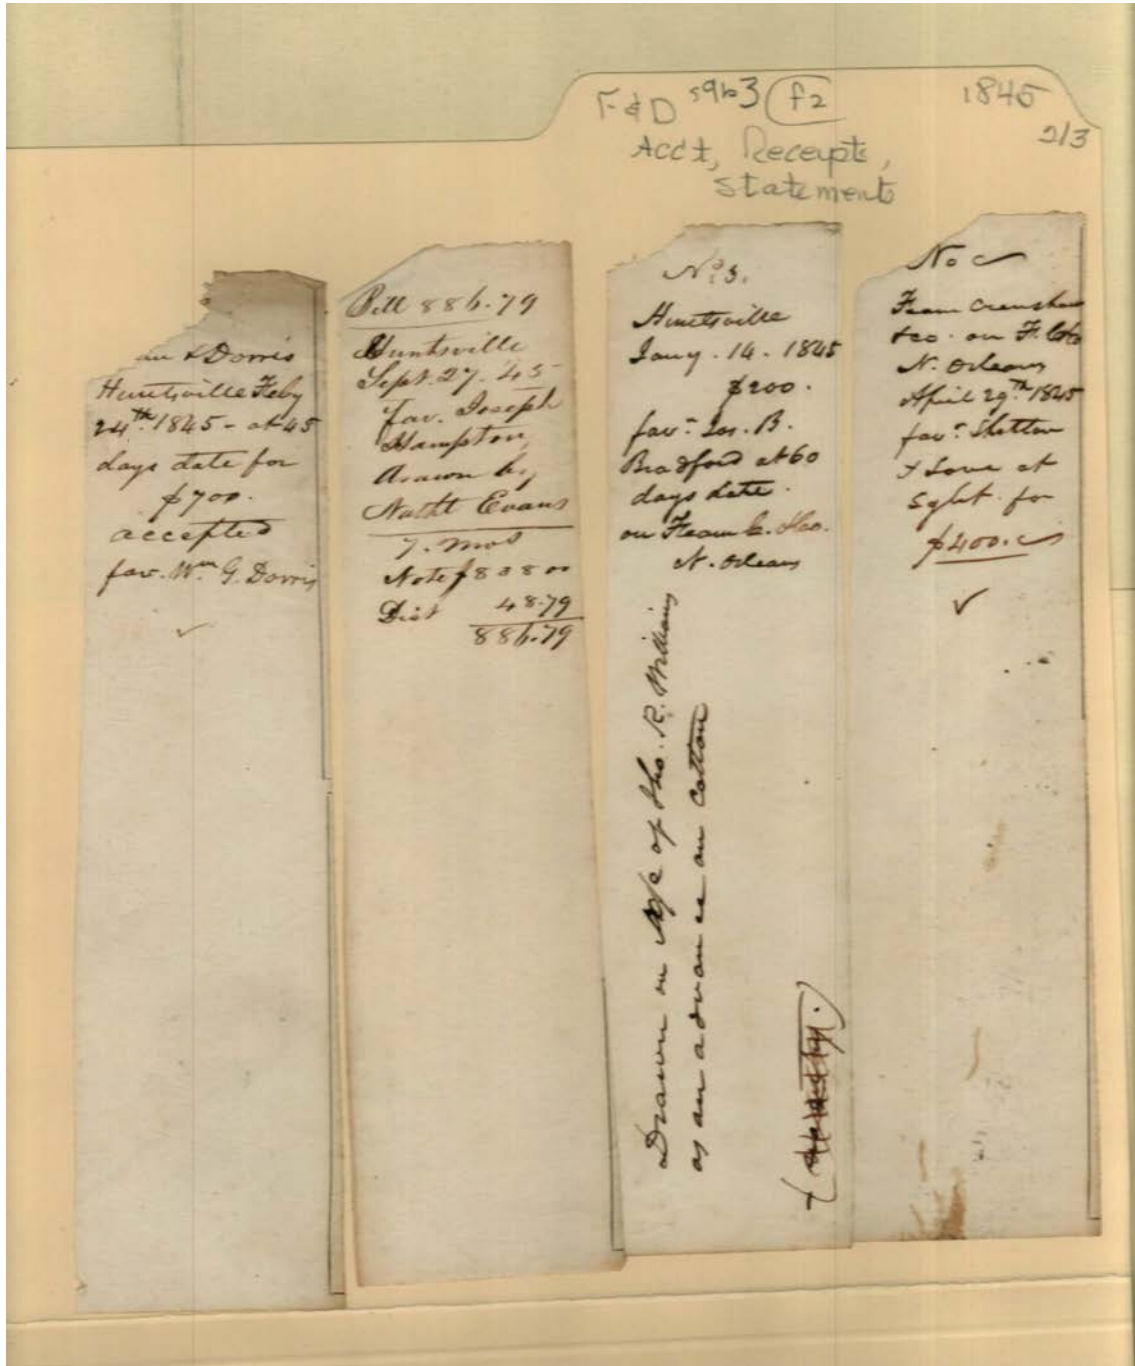 F & D s9b3 f2 1845
2/3
Acc't, Receipts,
Statements
& Dorris
Huntsville Feby
24th 1845 - at 45
days date for
$700.
accepted
fav. Wm G. Dorris
Bill 886.79
Huntsville
Sept. 27. 45
fav. Joseph
Hampton
drawn by
Natht Evans
7. mos
Note $838 00
Dist 48.79
886.79
No 3.
Huntsville
Jany. 14. 1845
$200.
favr Jos. B.
Bradford at 60
days date.
on Fearn
N. Orleans
Drawn on a/c of Tho. R. Williams
as an advance on Cotton
No
Fearn Crenshaw
&co. on F.
N. Orleans
April 29th 1845
favr Shelton
& Love at
sight for
$400.